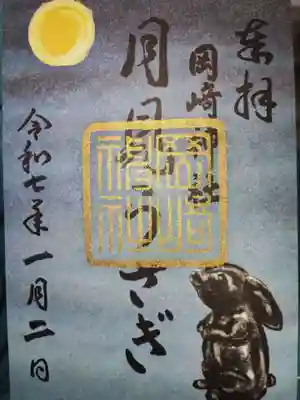 奉拝
岡崎神社
月見うさぎ
令和七年一月二日
岡崎
神社